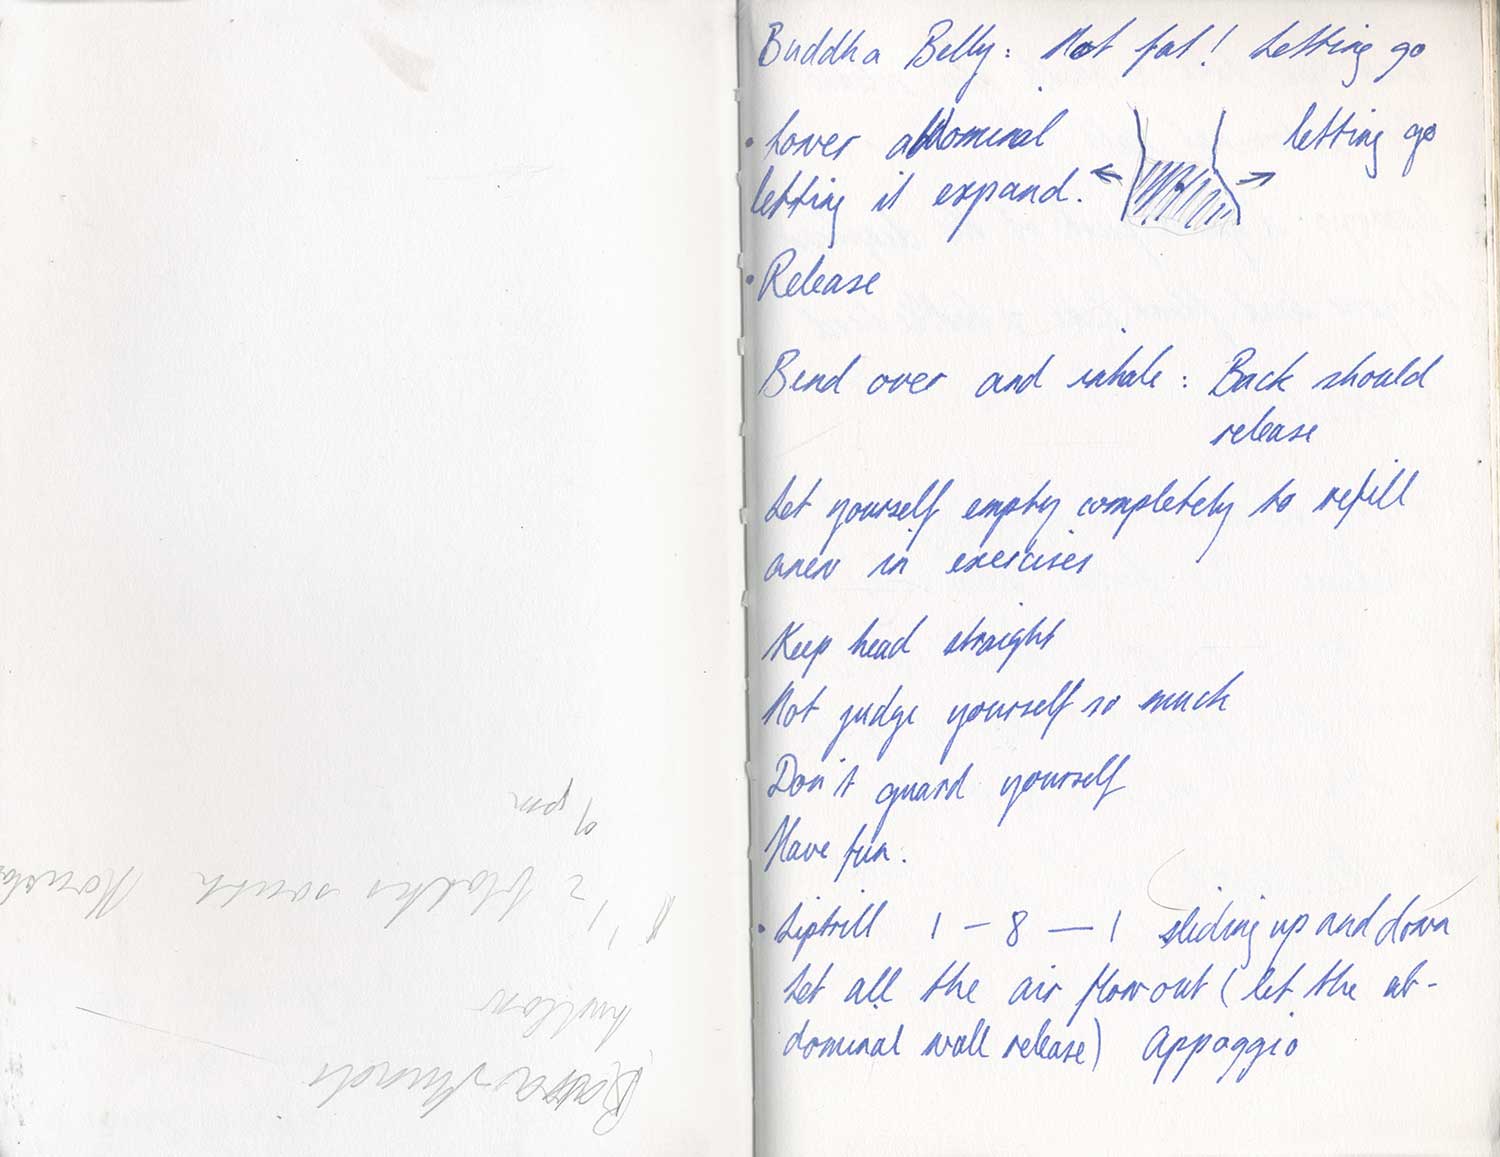 9 pm
2 blocks south
Buddha Belly: Not fat! Letting go
• Lower abdominal
letting it expand.
letting go
• Release
Bend over and inhale: Back should
release
Let yourself empty completely to refill
anew in exercises
Keep head straight
Not judge yourself so much
Don't guard yourself
Have fun.
• Liptrill 1 – 8 — 1 sliding up and down
Let all the air flow out (let the ab-
dominal wall release) Appoggio